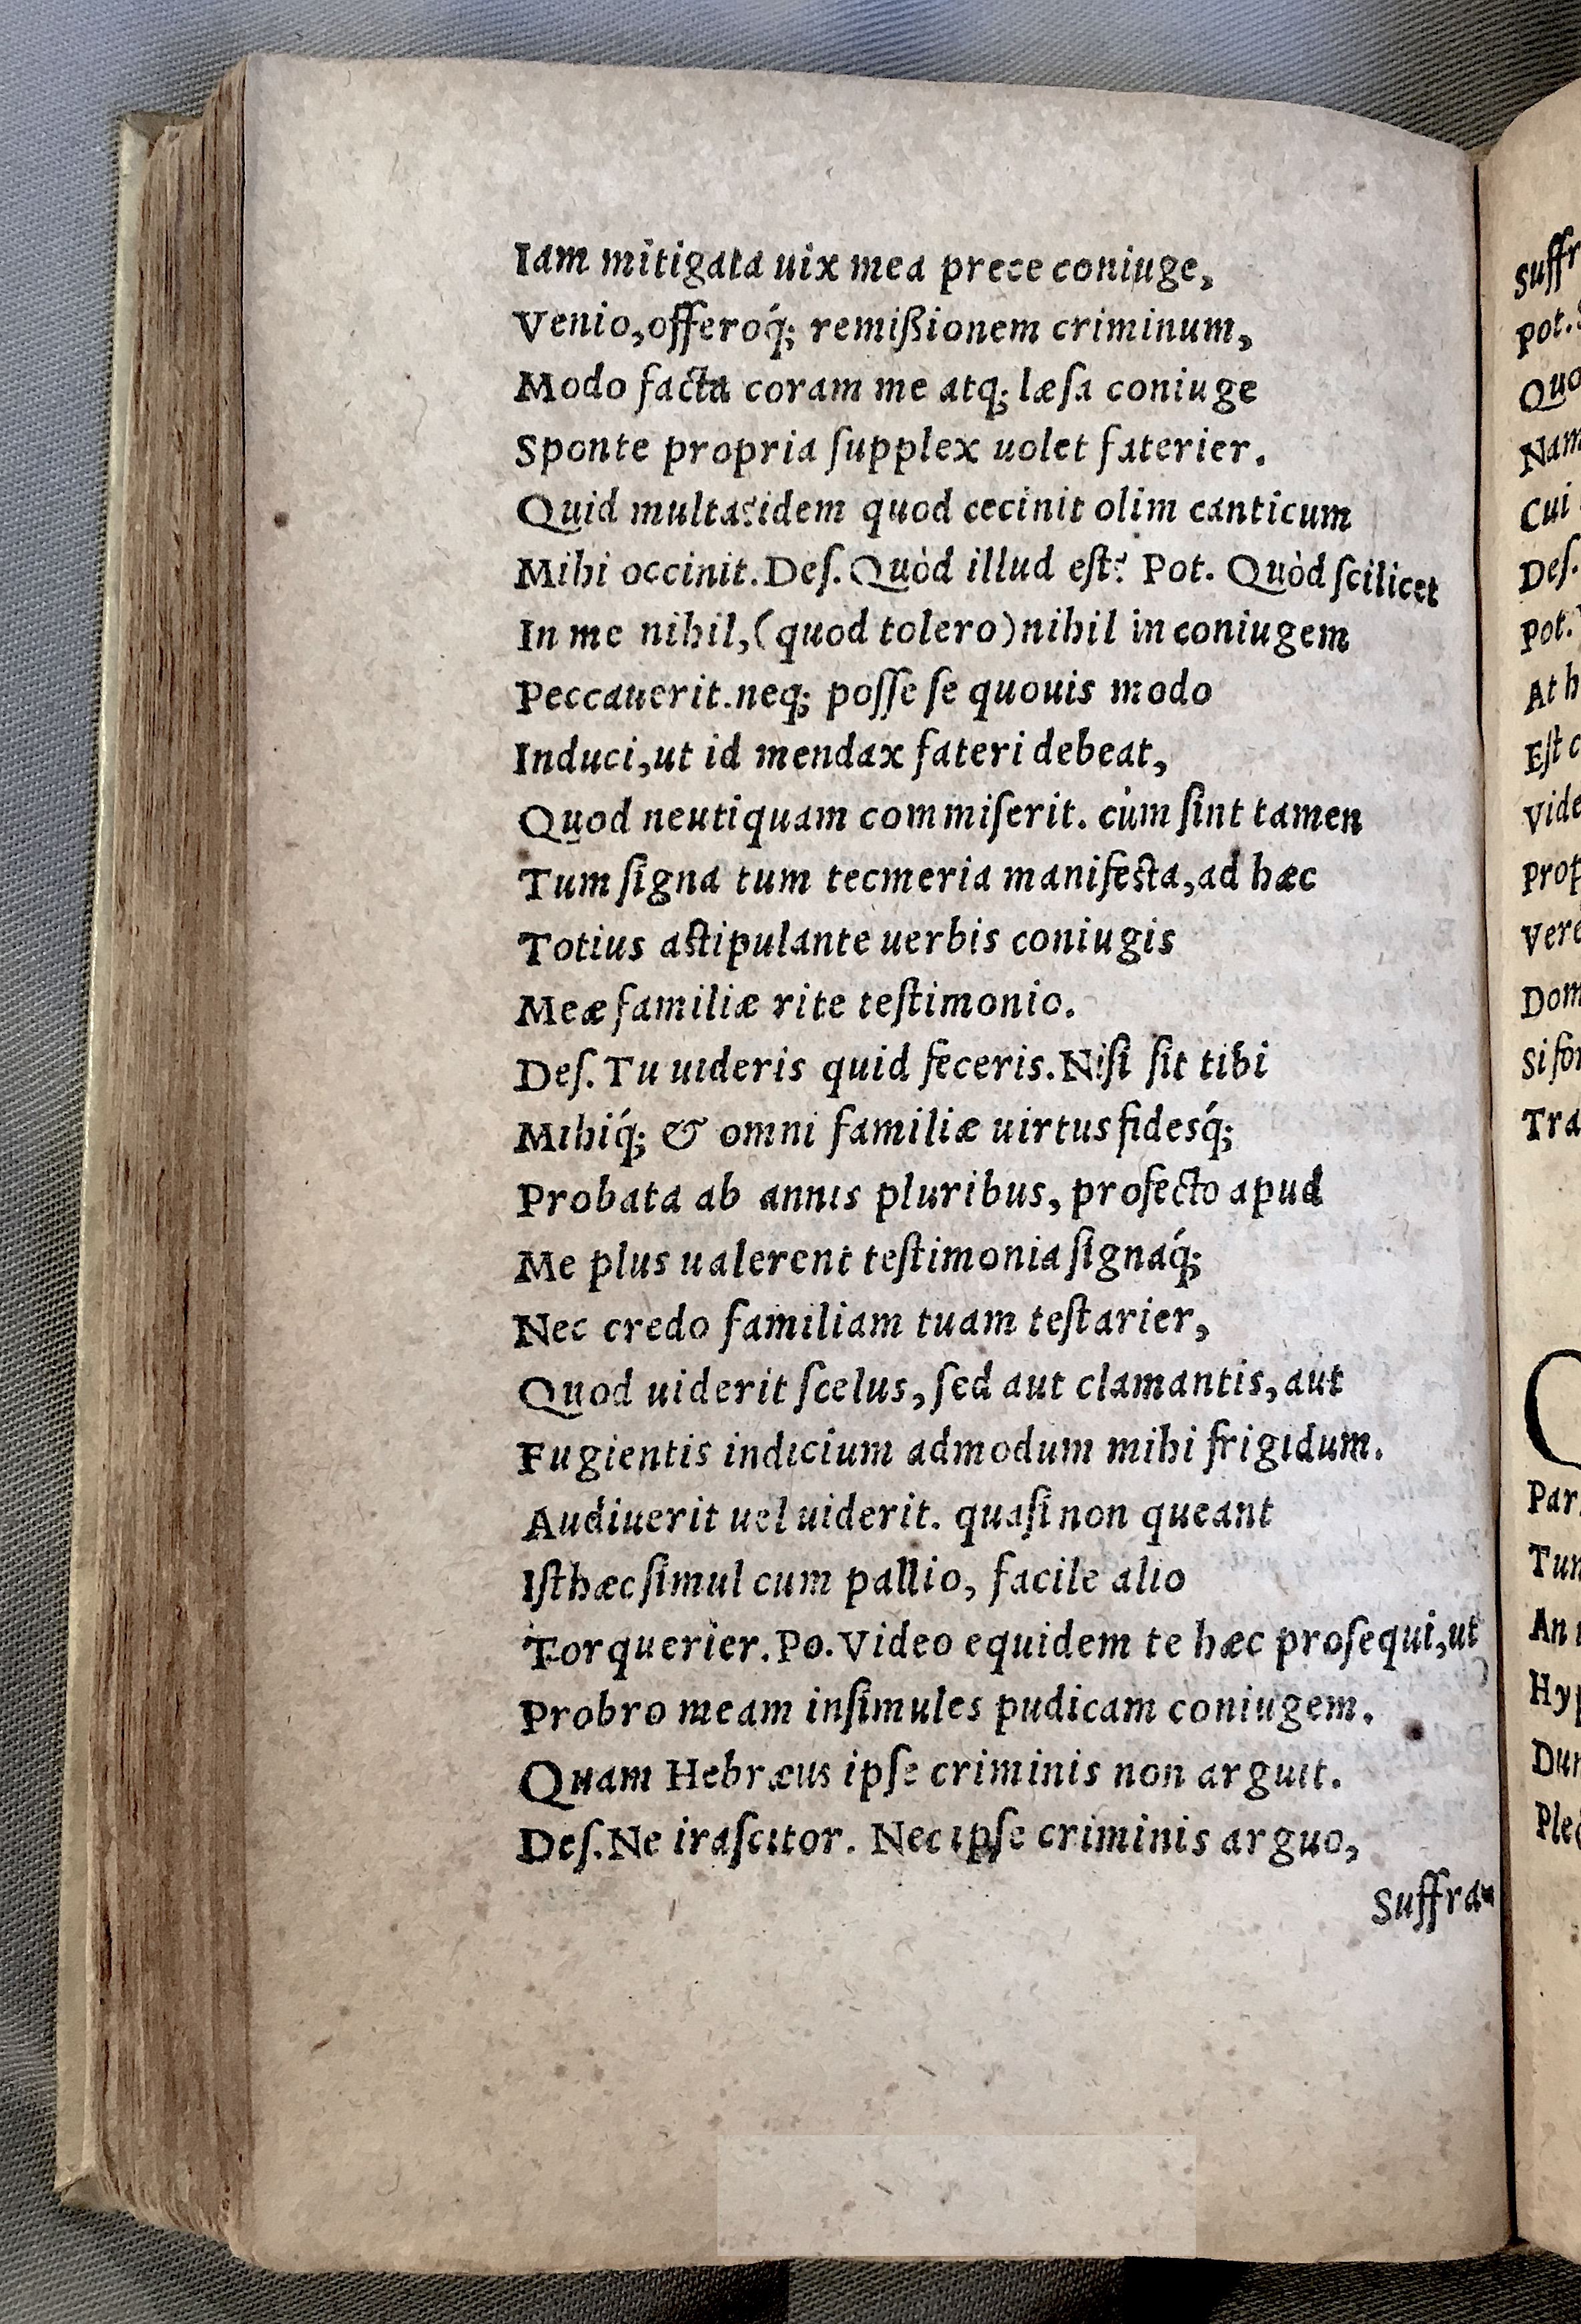 Iam mitigata uix mea prece coniuge,
Venio,offeroq́; remißionem criminum,
Modo facta coram me atq; læſa coniuge
Sponte propria ſupplex uolet faterier.
Quid multa?idem quod cecinit olim canticum
Mihi occinit.Deſ. Quòd illud eſt? Pot. Quòd ſcilicet
In me nihil,(quod tolero)nihil in coniugem
Peccauerit.neq; poſſe ſe quouis modo
Induci,ut id mendax fateri debeat,
Quod neutiquam commiſerit. cùm ſint tamen
Tum ſigna tum tecmeria manifeſta,ad hæc
Totius aſtipulante uerbis coniugis
Meæ familiæ rite teſtimonio.
Deſ. Tu uideris quid feceris.Niſi ſit tibi
Mihiq́; & omni familiæ uirtus fidesq́;
Probata ab annis pluribus, profecto apud
Me plus ualerent teſtimonia ſignaq́;
Nec credo familiam tuam teſtarier,
Quod uiderit ſcelus, ſed aut clamantis, aut
Fugientis indicium admodum mihi frigidum.
Audiuerit uel uiderit. quaſi non queant
Iſthæc ſimul cum pallio, facile alio
Torquerier. Po. Video equidem te hæc proſequi,ut
Probro meam inſimules pudicam coniugem.
Quam Hebræus ipſe criminis non arguit.
Deſ.Ne iraſcitor. Nec ipſe criminis arguo,
Suffra-
Suffr
Pot.
Quo
Nam
Cui
Deſ.
Pot.
At h
Eſt c
Vide
Prop
Vere
Dom
Si for
Tra
Par
Tun
An
Hyp
Dun